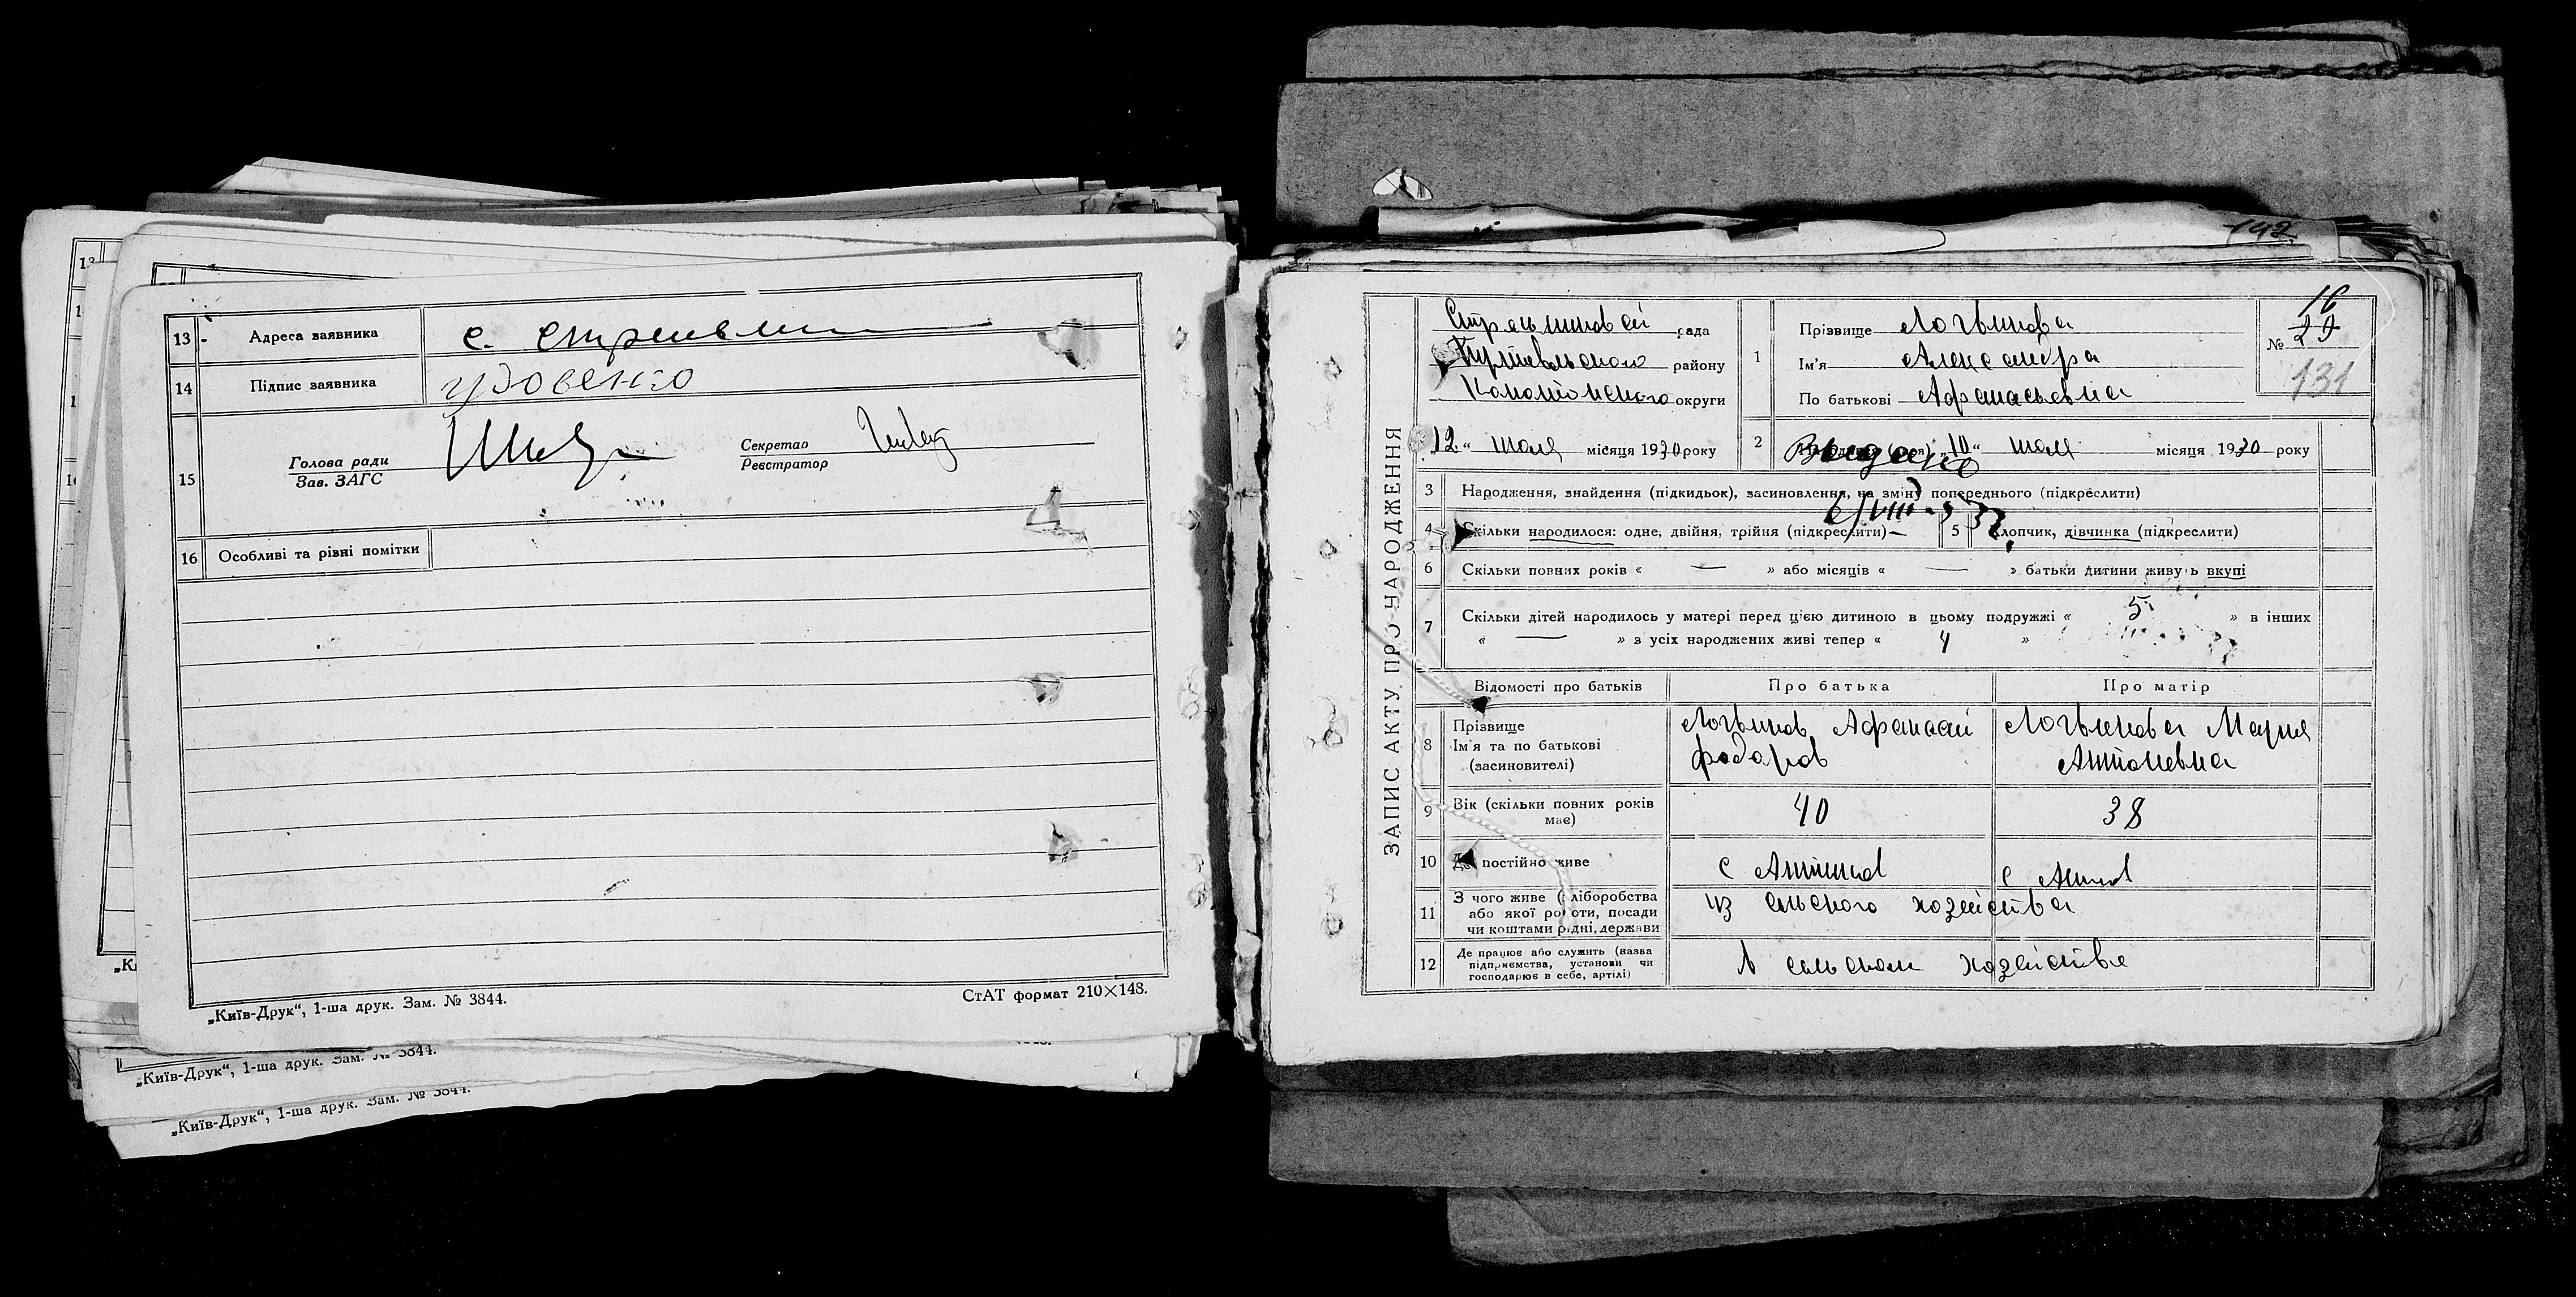 13 Адреса заявника с.
14 Підпис заявника Удовенко
15 Голова ради
Зав. ЗАГС
Секретар
Реєстратор
16 Особливі та рівні помітки
„Київ-Друк“, 1-ша друк. Зам. № 3844.
СтАТ формат 210×148.
„Київ-Друк“, 1-ша друк. Зам. № 3844.
„Київ-Друк“, 1-ша друк. Зам. № 3844.
142
ЗАПИС АКТУ ПРО НАРОДЖЕННЯ
рада
Путивльского району
Конотопского округи
„12“ июля місяця 1930 року
1 Прізвище Логвинова
Ім'я Александра
По батькові Афанасьевна
16
№ 29
131
2 „10“ июля місяця 1930 року
Видано
3 Народження, знайдення (підкидьок), засиновлення, на зміну попереднього (підкреслити)
6/VIII-37
4 Скільки народилося: одне, двійня, трійня (підкреслити)
5 Хлопчик, дівчинка (підкреслити)
6 Скільки повних років « — » або місяців « — » батьки дитини живуть вкупі
7 Скільки дітей народилось у матері перед цією дитиною в цьому подружжі « 5 » в інших
« — » з усіх народжених живі тепер « 4 »
Відомості про батьків Про батька Про матір
8 Прізвище
Ім'я та по батькові
(засиновителі)
Логвинов Афанасий
Федоров
Логвинова Мария
Антоневна
9 Вік (скільки повних років
має)
40 38
10 Де постійно живе с с
11 З чого живе (з хліборобства
або якої роботи, посади
чи коштами рідні, держави
из сельского хозяйства
12 Де працює або служить (назва
підприємства, установи чи
господарює в себе, артілі)
в сельском хозяйстве